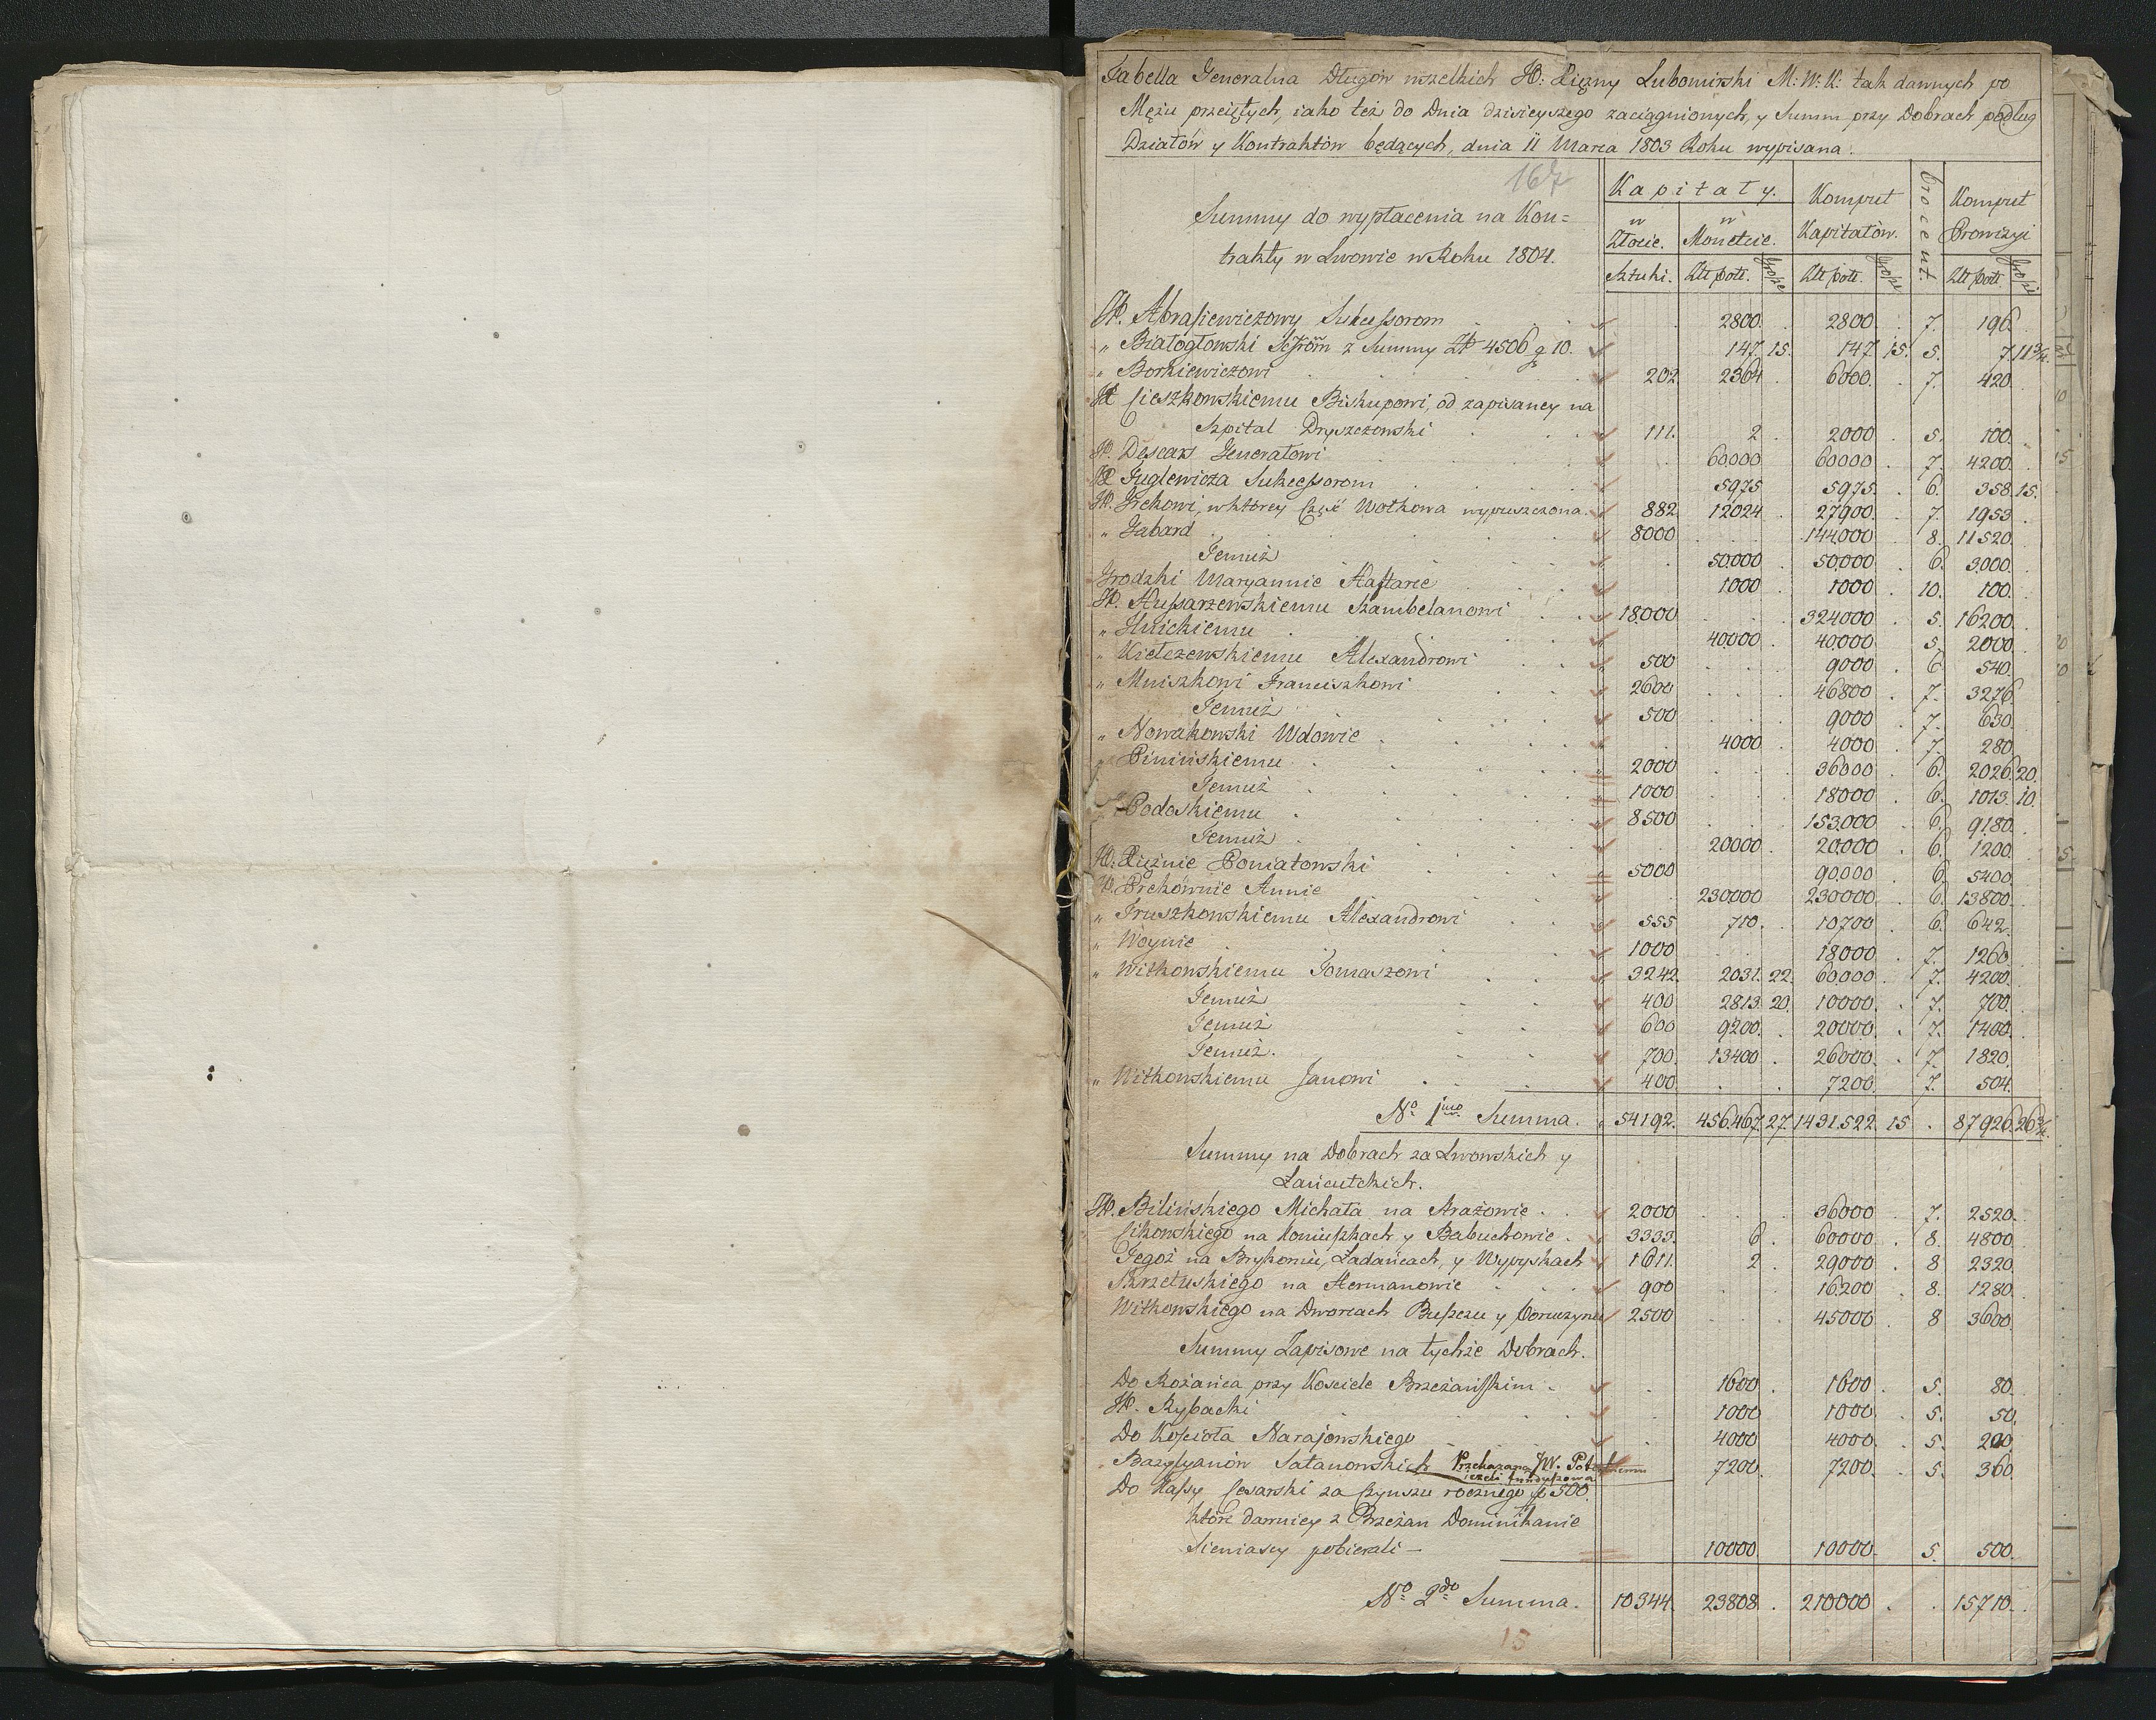 Tabella Generalna Długow wszelkich JO: Xiężny Lubomirski M: W: K: tak dawnych po
Mężu przeiętych, iako też do Dnia dzisieyszego zaciągnionych, y Summ przy Dobrach podług
Działów y Kontraktów będących, dnia 11 Marca 1803 Roku wypisana.
167
Kapitały. Komput Procent. Komput
Summy do wypłacenia na Kon=
w Złocie. w Monetzie. Kapitałów. Prowizyi
trakty w Lwowie w Roku 1804.
Sztuki. Złt polt. Grosze Złt polt. Grosze Złt polt Grosze
W. Abrasiewiczowy Sukcessorom 2800. 2800. 7. 196.
" Białogłowski z Summy Zł 4506 g 10. 147. 15. 147. 15. 5. 7. 11 3/4.
" Borkiewiczowi 202. 2364. 6000. 7. 420.
Cieszkowskiemu Biskupowi, od zapisaney na
Szpital Dryszczowski 111. 2. 2000. 5. 100.
W. Descars Generałowi 60000. 60000. 7. 4200.
W Fuglewicza Sukcessorom 5975 5975. 6. 358. 15.
W. Grekowi, w ktorey Część Wołkowa wypuszczona. 882. 12024. 27900. 7. 1953.
" Gabard 8000. 144000. 8. 11520.
Temuż 50000. 50000. 6. 3000.
Grodzki Maryannie 1000. 1000. 10. 100.
W. Hussarzewskiemu Szambelanowi 18000. 324000. 5. 16200.
" Hnickiemu 40000. 40000. 5. 2000.
" Kiełczewskiemu Alexandrowi 500. 9000. 6. 540.
" Mniszkowi Franciszkowi 2600. 46800. 7. 3276.
Temuż 500. 9000. 7. 630.
" Nowakowski Wdowie 4000. 4000. 7. 280.
" Pinińskiemu 2000. 36000. 6. 2026. 20.
Temuż 1000. 18000. 6. 1013. 10.
" Podoskiemu 8500. 153000. 6. 9180.
Temuż 20000. 20000. 6. 1200.
JO: Xiężnie Poniatowski 5000. 90000. 6. 5400.
W. Prekównie Annie 230000. 230000. 6. 13800.
" Truszkowskiemu Alexandrowi 555. 710. 10700. 6. 642.
" Woynie 1000. 18000. 7. 1260.
" Witkowskiemu Tomaszowi 3242. 2031. 22. 60000. 7. 4200.
Temuż 400. 2813. 20. 10000. 7. 700.
Temuż 600. 9200. 20000. 7. 1400.
Temuż. 700. 13400. 26000. 7. 1820.
" Witkowskiemu Janowi 400. 7200. 7. 504.
No 1mo Summa. 54192. 456467. 27. 1431522. 15. 87926. 26 3/4.
Summy na Dobrach za Lwowskich y
Łańcutckich.
W. Bilińskiego Michała na Arażowie 2000. 36000. 7. 2520.
Cikowskiego na Koniuszkach y Babuchowie. 3333. 6. 60000. 8. 4800.
Tegoż na Brykoniu, Ładańcach, y Wypyskach 1611. 2. 29000. 8. 2320.
Skrzetuskiego na Hermanowie 900. 16200. 8. 1280.
Witkowskiego na Dworcach Buszczu y Poruczynie 2500 45000. 8. 3600.
Summy Zapisowe na tychże Dobrach.
Do Rożańca przy Kosciele Brzeżańskim. 1600. 1600. 5. 80.
W. Rybacki 1000. 1000. 5. 50.
Do Kościoła Narajowskiego 4000. 4000. 5. 200.
Bazylyanów Satanowskich Przekazana JW. 7200. 7200. 5. 360.
Do Kassy Cesarski za Czynszu rocznego f 500.
które dawniey z Brzeżan Dominikanie
Sieniascy pobierali — 10000. 10000. 5. 500.
No 2do Summa. 10344. 23808. 210000. 15710.
15